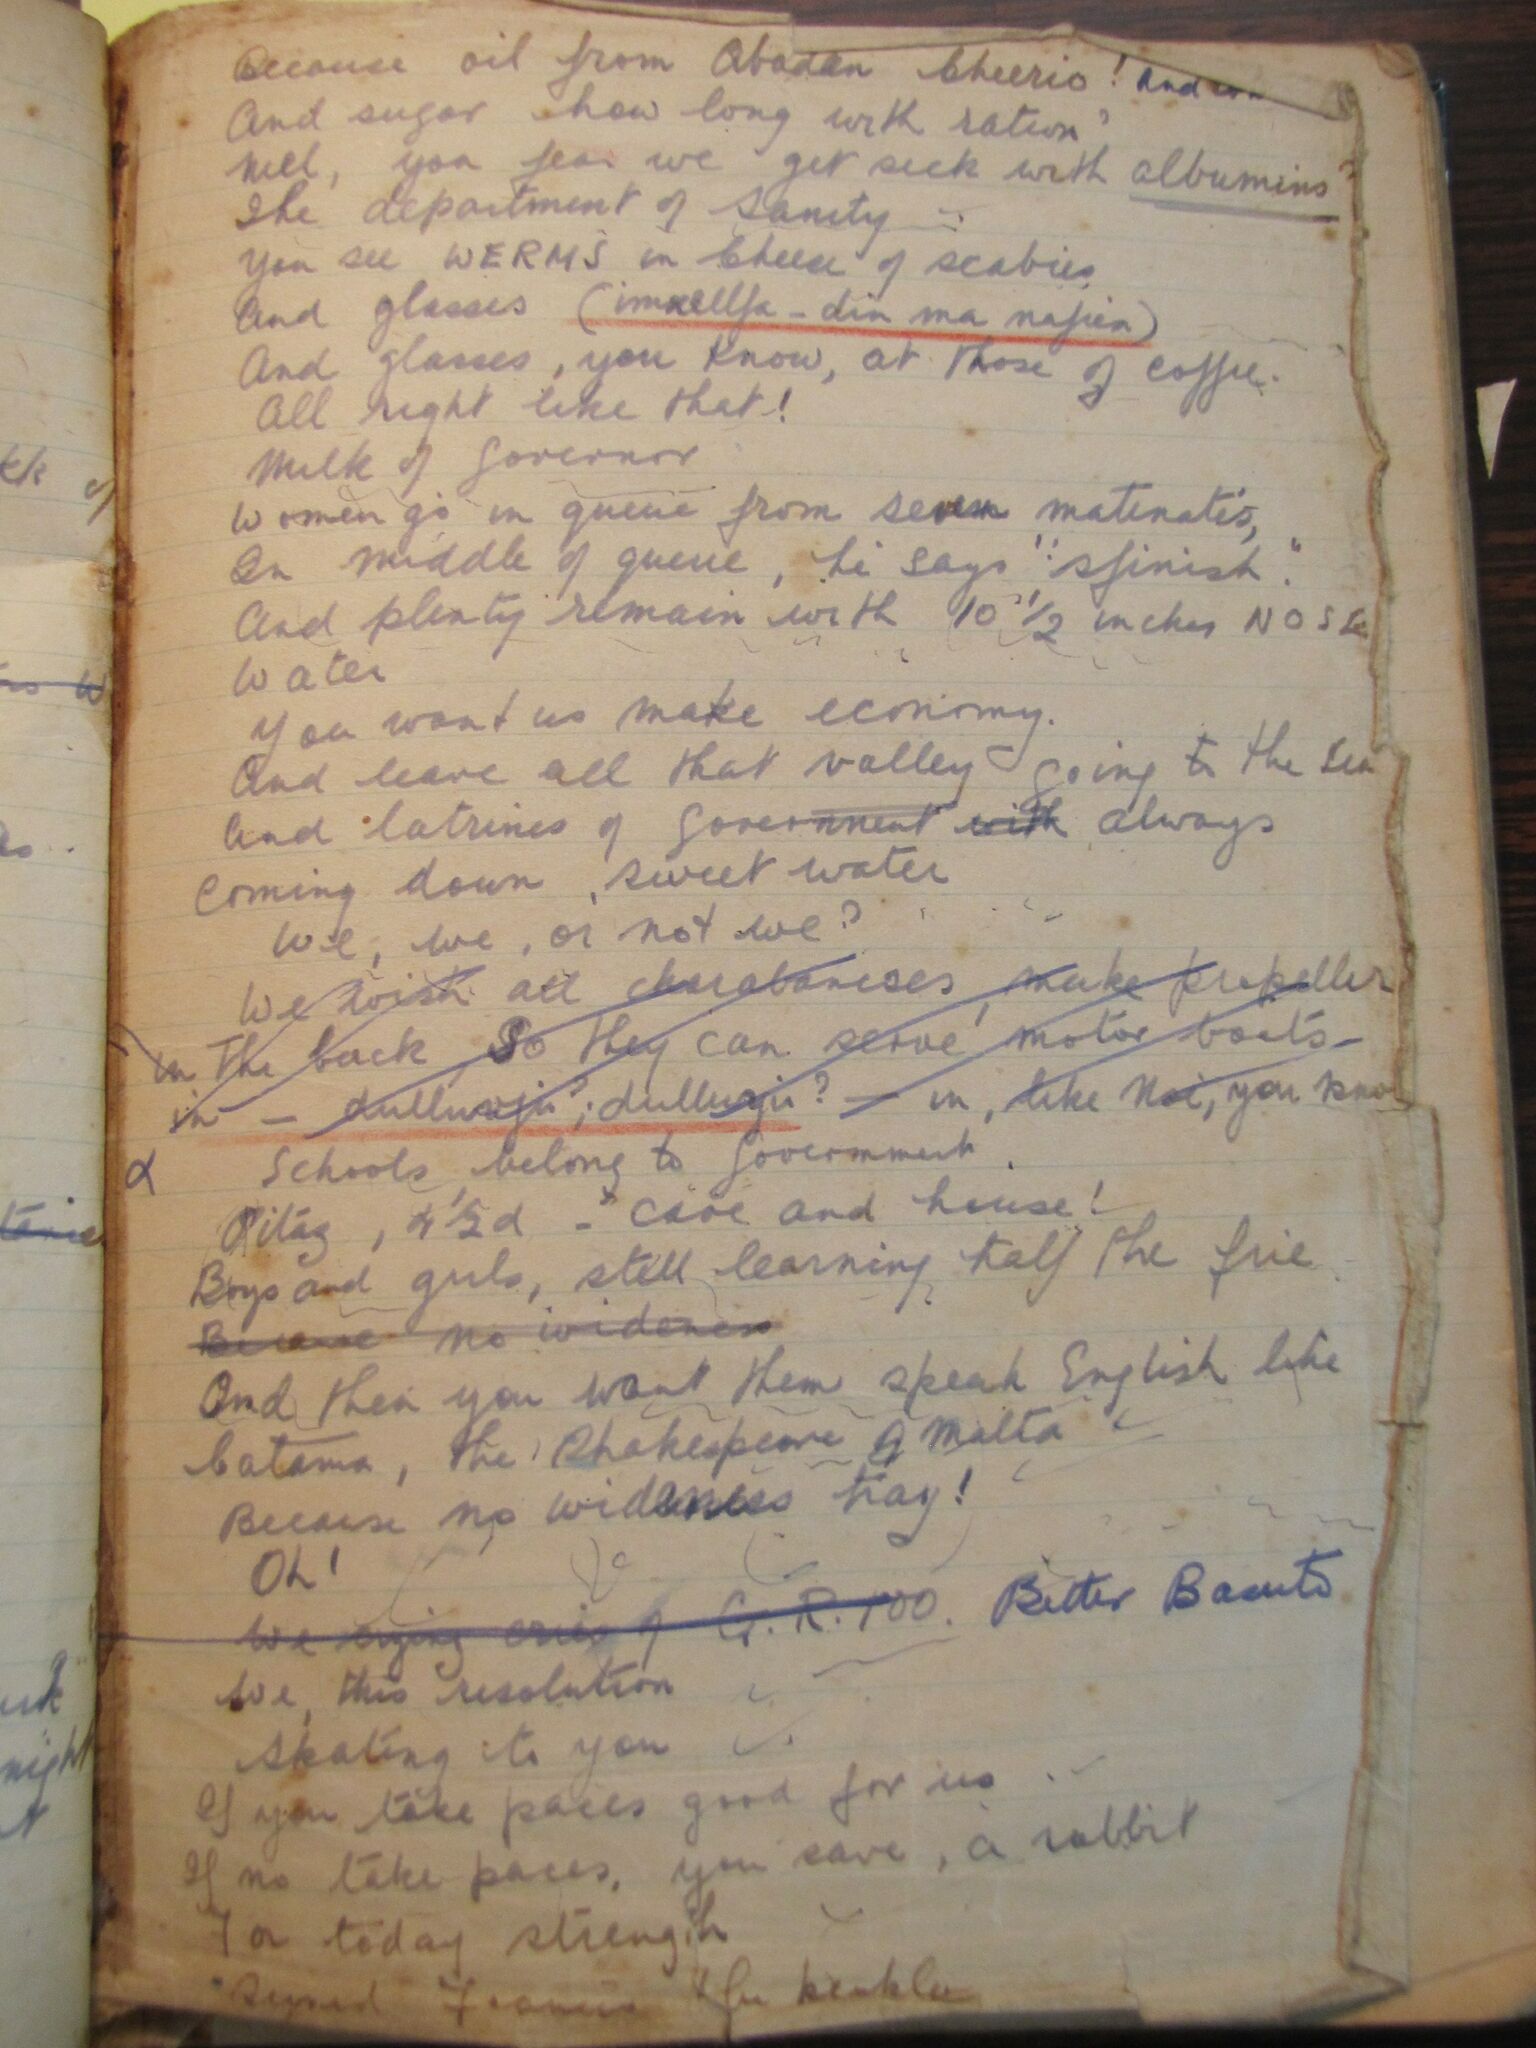 Because oil from Abadan Cheerio! And
And sugar how long with ration?
Well, you fear we get seek with albumins?
The department of Sanity
You see WERMS in Cheese of scabies
And glasses (imnellfa - din ma nafien)
And glasses, you know, at those of coffee.
All right like that!
Milk of Governor
Women go in queue from seven matinatis,
In middle of queue, he says "sfinish".
And plenty remain with 10 1/2 inches NOSE
Water
You want us make economy.
And leave all that valley going to the sea
And latrines of Government with always
coming down, sweet water
We, we, or not we?
We wish all charabancses, make propeller
in the back So they can serve motor boats -
in - dullurju?; dullurju? - in, like Noi, you kno
Schools belong to Government.
Pitaz, 4 1/2 d - "Cave and house!
Boys and girls, still learning half the frie
Because no wideness
And then you want them speak English like
Catama, the Shakespeare of Malta
Because no wideness hag!
Oh!
We crying cries of G.R. 100. Better Basuto
We, this resolution
Skating to you
If you take paces good for us
If no take paces, you save, a rabbit
For today strength
Signed